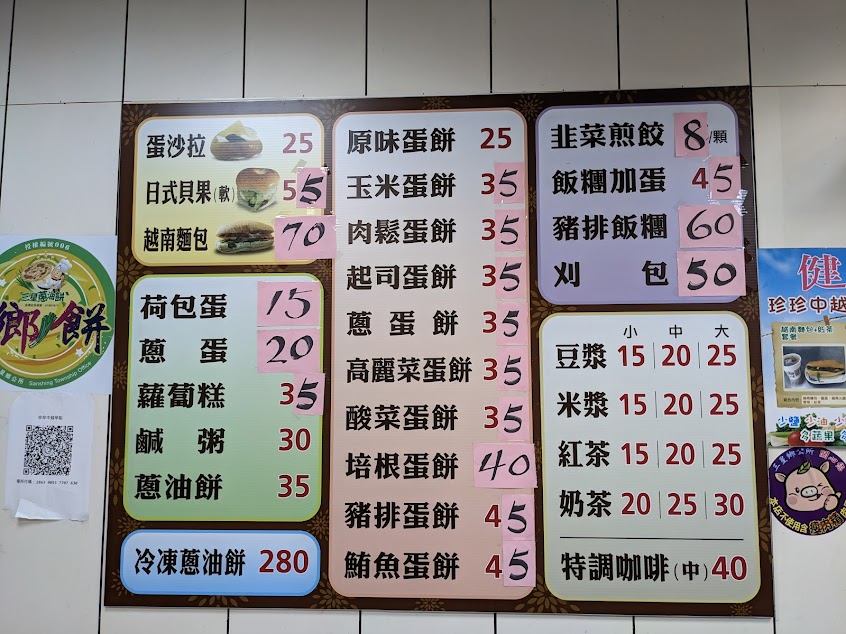 蛋沙拉 25
日式貝果(軟) 55
越南麵包 70
荷包蛋 15
蔥蛋 20
蘿蔔糕 35
鹹粥 30
蔥油餅 35
冷凍蔥油餅 280
原味蛋餅 25
玉米蛋餅 35
肉鬆蛋餅 35
起司蛋餅 35
蔥蛋餅 35
高麗菜蛋餅 35
酸菜蛋餅 35
培根蛋餅 40
豬排蛋餅 45
鮪魚蛋餅 45
韭菜煎餃 8/顆
飯糰加蛋 45
豬排飯糰 60
刈包 50
小 中 大
豆漿 15 20 25
米漿 15 20 25
紅茶 15 20 25
奶茶 20 25 30
特調咖啡(中) 40
授權編號006
三星蔥油餅
鄉餅
Sanshing Township Office
健
珍珍中越
越南麵包+奶茶
套餐
少鹽 少油 少
多蔬果